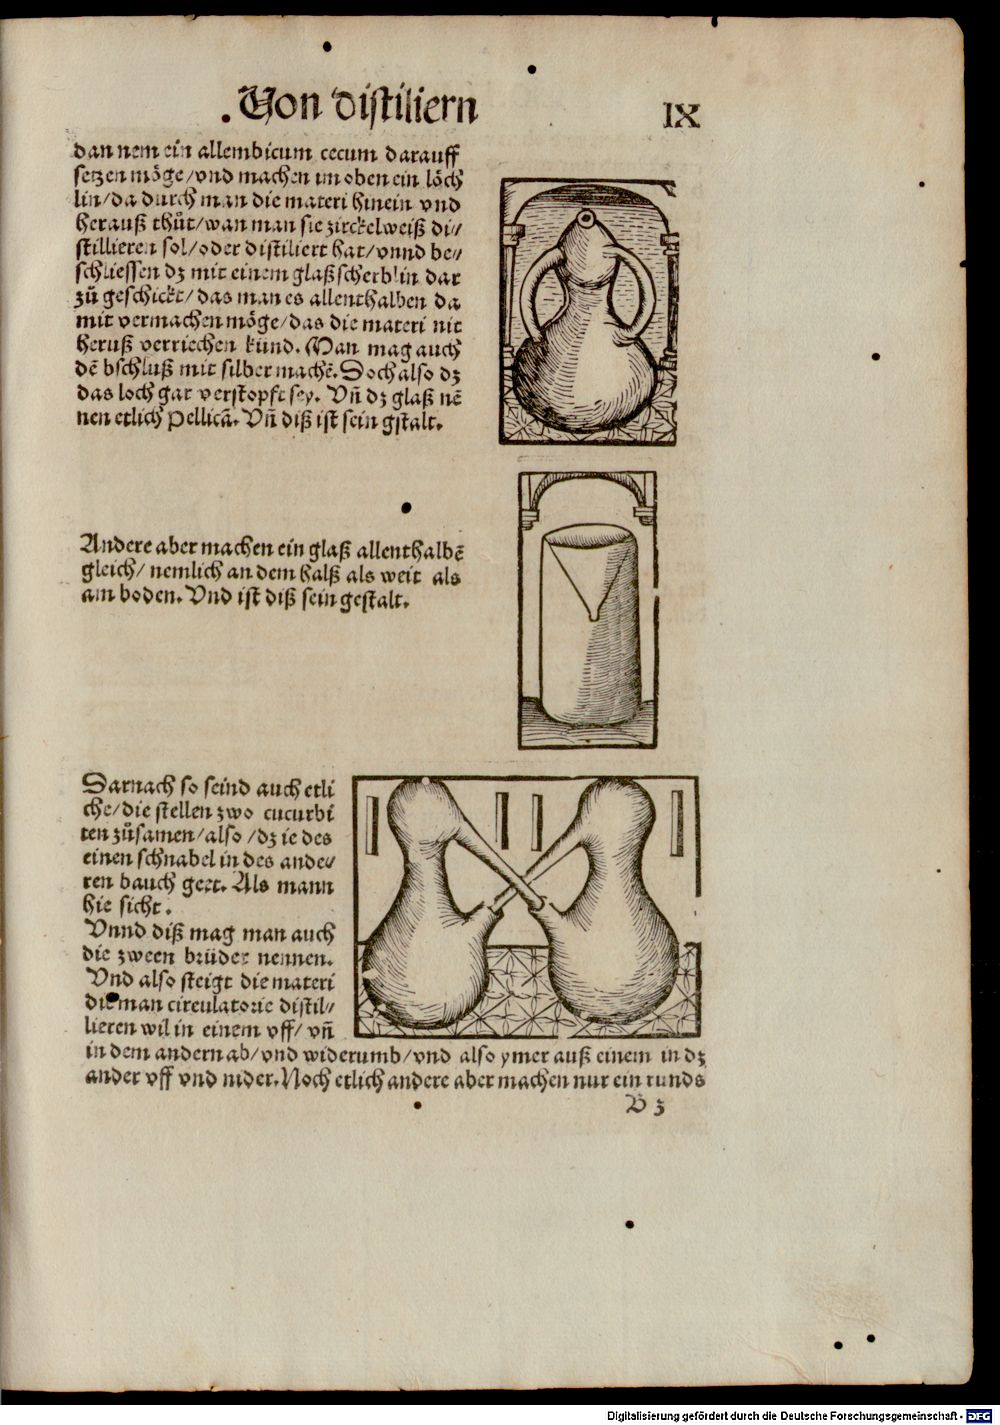 .Von distiliern
IX
dan nem ein allembicum cecum darauff
setzen möge/vnd machen im oben ein löch
lin/da durch man die materi hinein vnd
herauß thůt/wan man sie zirckelweiß di//
stillieren sol/oder distiliert hat/vnnd be//
schliessen dz mit einem glaß scherblin dar
zů geschickt/das man es allenthalben da
mit vermachen möge/das die materi nit
heruß verriechen künd. Man mag auch
dē bschluß mit silber machē. Doch also dz
das loch gar verstopft sey. Vn̄ dz glaß nē
nen etlich Pellicā. Vn̄ diß ist sein gstalt.
Andere aber machen ein glaß allenthalbē
gleich/nemlich an dem halß als weit als
am boden. Vnd ist diß sein gestalt.
Darnach so seind auch etli
che/die stellen zwo cucurbi
ten zůsamen/also/dz ie des
einen schnabel in des ande//
ren bauch geet. Als mann
hie sicht.
Vnnd diß mag man auch
die zween brüder nennen.
Vnd also steigt die materi
die man circulatorie distil//
lieren wil in einem vff/vn̄
in dem andern ab/vnd widerumb/vnd also ymer auß einem in dz
ander vff vnd nider. Noch etlich andere aber machen nur ein runds
B 3
Digitalisierung gefördert durch die Deutsche Forschungsgemeinschaft - DFG